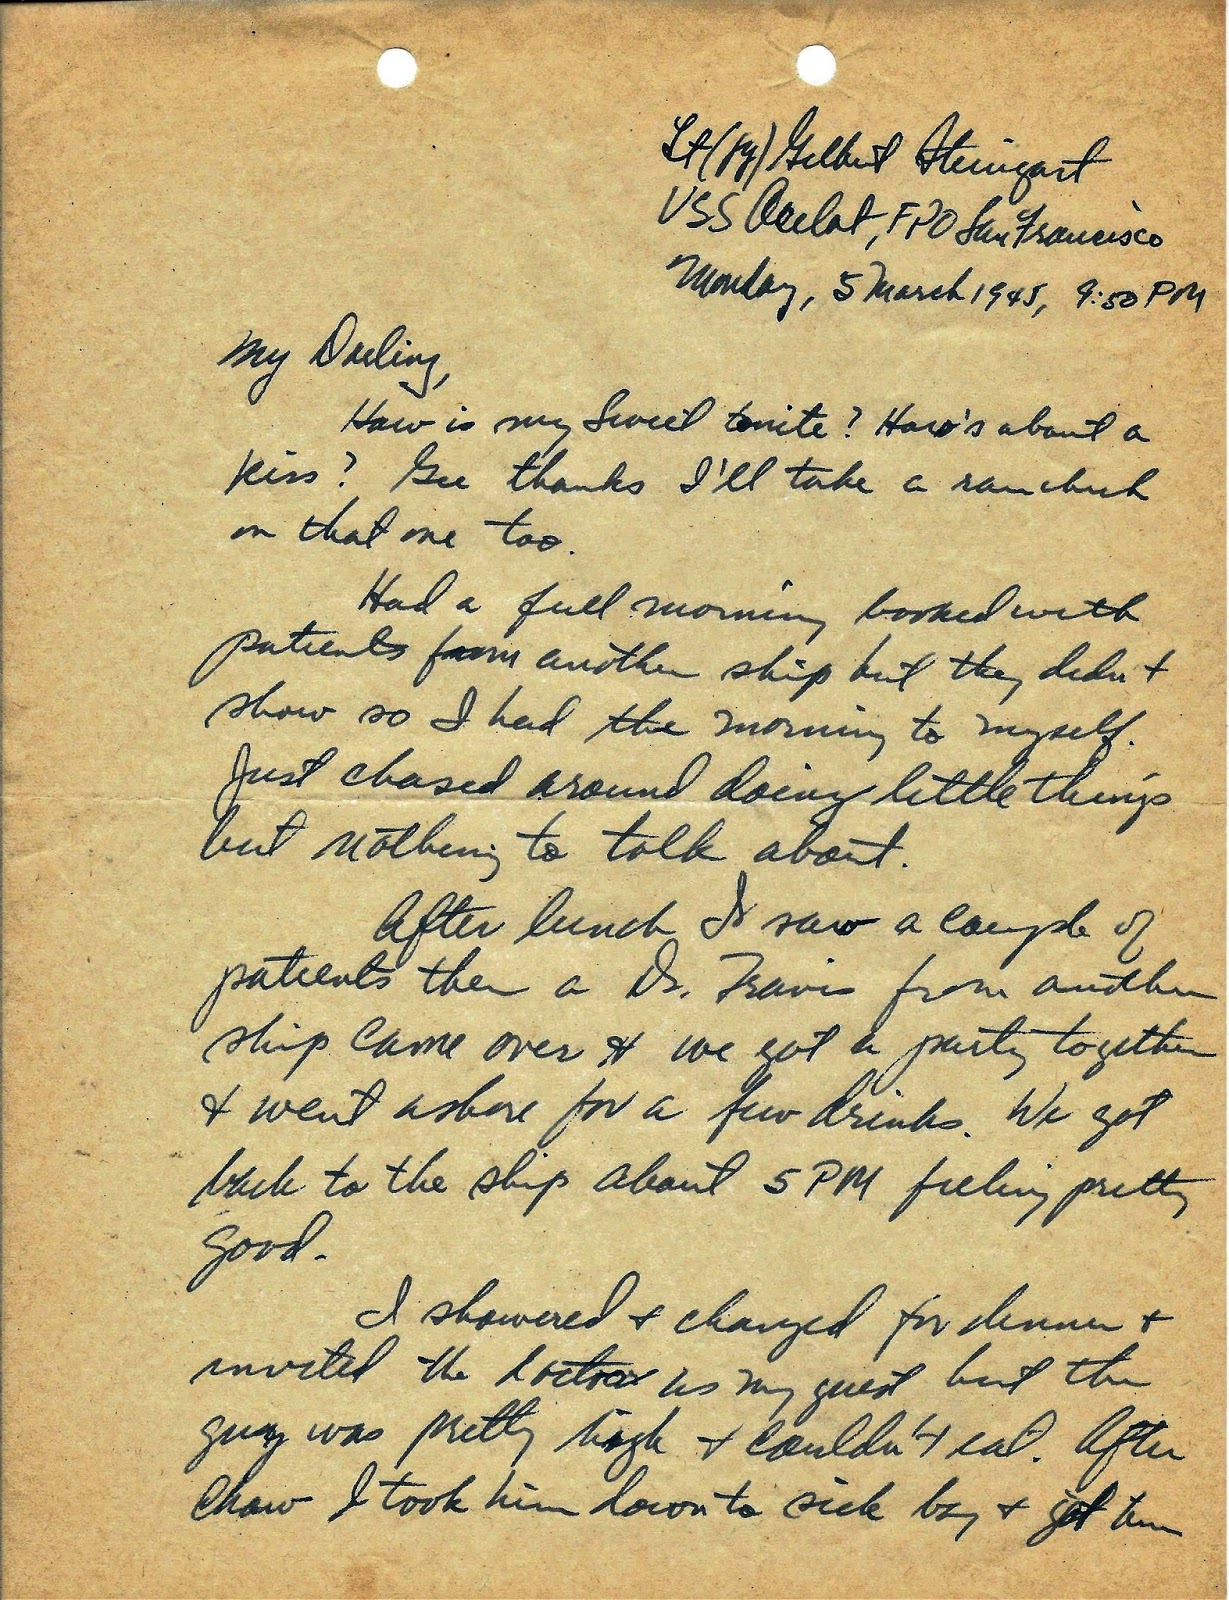 Lt(jg) Gilbert Steingart
USS Ocelot, FPO San Francisco
Monday, 5 March 1945, 9:50 PM
My Darling,
How is my Sweet tonite? How's about a
kiss? Gee thanks I'll take a raincheck
on that one too.
Had a full morning booked with
patients from another ship but they didn't
show so I had the morning to myself.
Just chased around doing little things
but nothing to talk about.
After lunch I saw a couple of
patients then a Dr. Travis from another
ship came over & we got a party together
& went ashore for a few drinks. We got
back to the ship about 5 PM feeling pretty
good.
I showered & changed for dinner &
invited the doctor as my guest but the
guy was pretty high & couldn't eat. After
chow I took him down to sick bay & got him